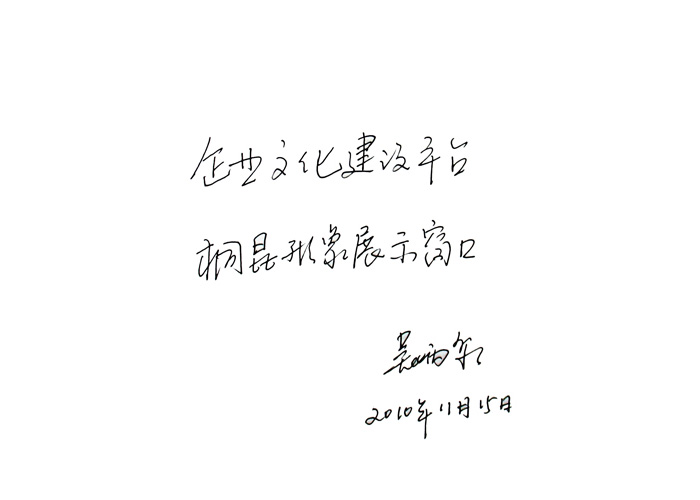 企业文化建设平台
桐昆形象展示窗口
吴
2010年11月15日